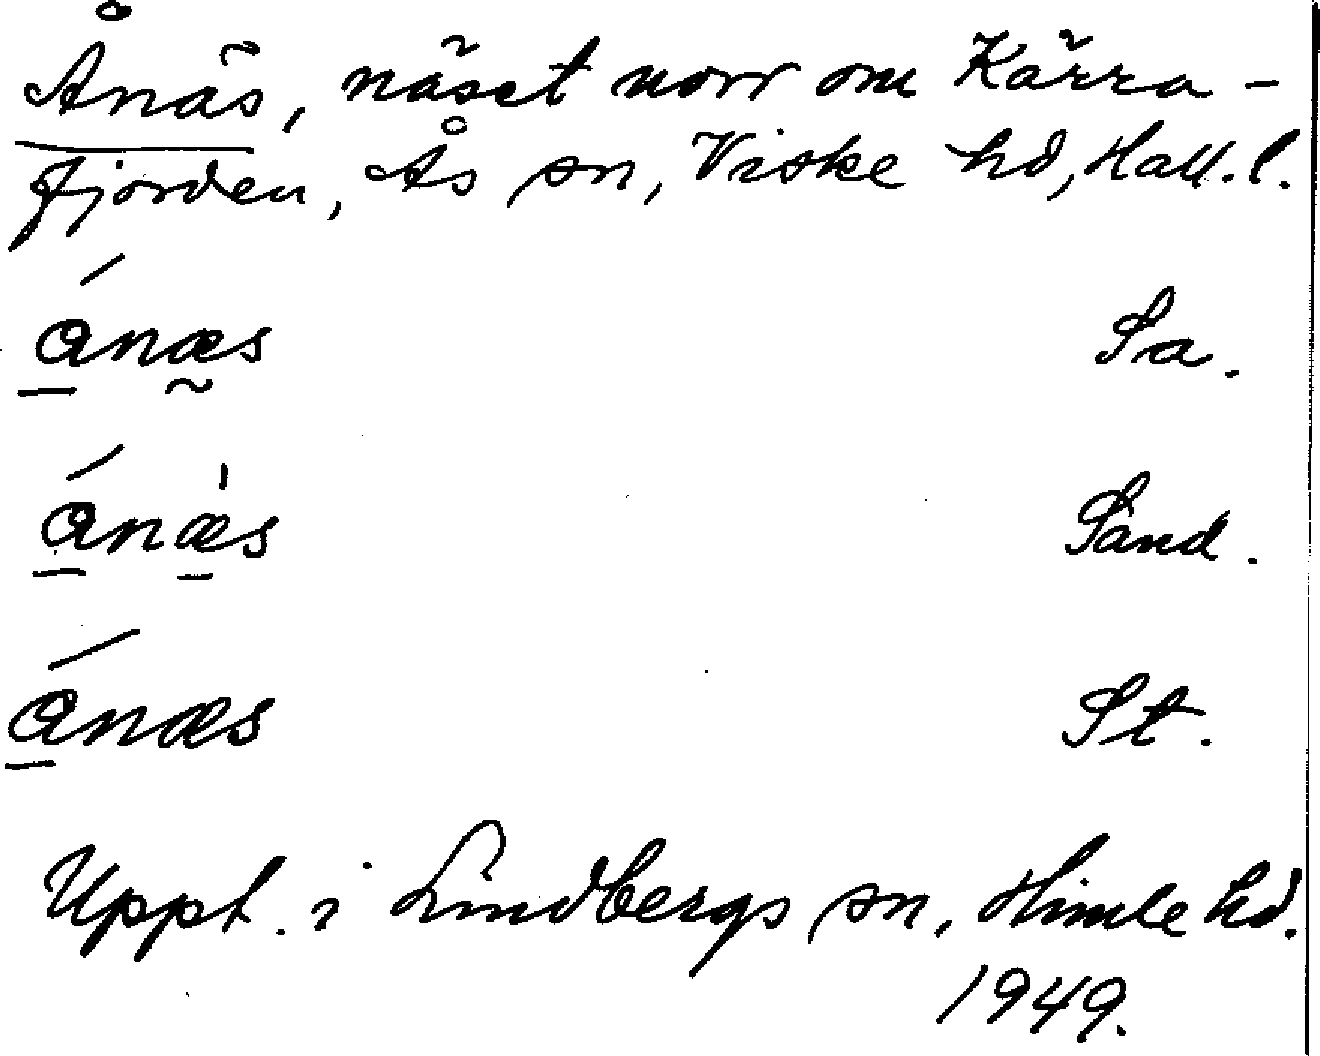 Ånäs, näset norr om Kärra-
fjorden, Ås sn, Viske hd, Hall. l.
ánæs Sa.
ánæ̍s Sand.
ánæs St.
Uppt. i Lindbergs sn, Himle hd.
1949.